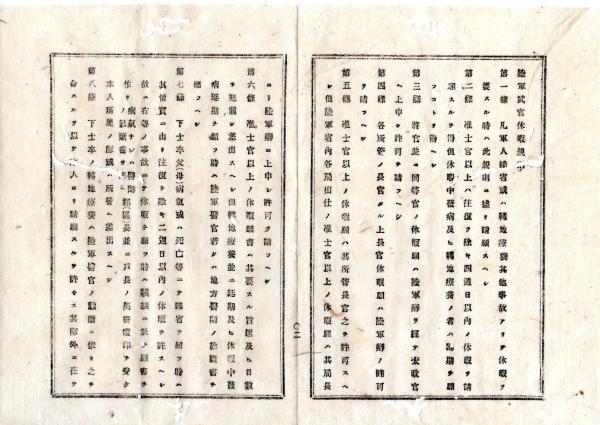 陸軍武官休暇規則
第一條　凡軍人歸省或ハ轉地療養其他事故アリテ休暇ヲ
要スル時ハ此規則ニ據リ請願スヘシ
第二條　准士官以上ハ往復ヲ除キ四週日以内ノ休暇ヲ請
願スルヲ得但休暇中發病及ヒ轉地療養ノ者ハ延期ヲ願
フコトヲ得ヘシ
第三條　將官並ニ同等官ノ休暇願ハ陸軍卿ヲ經テ太政官
ヘ上申シ許可ヲ請フヘシ
第四條　各所管ノ長官タル上長官休暇願ハ陸軍卿ノ許可
ヲ請フヘシ
第五條　准士官以上ノ休暇願ハ其所管長官之ヲ許可スヘ
シ但陸軍省内各局出仕ノ准士官以上ノ休暇願ハ其局長
〇二
ヨリ陸軍卿ニ上申シ許可ヲ請フヘシ
第六條　准士官以上ノ休暇願書ハ其要スル旨趣及ヒ日數
ヲ記載シ差出スヘシ但轉地療養並ニ延期及ヒ休暇中發
病延期ヲ願フ時ハ陸軍醫官若クハ地方醫師ノ診斷書ヲ
添フヘシ
第七條　下士卒父母病氣或ハ死亡等ニテ歸省ヲ願フ時ハ
其情實ニ由リ往復ヲ除キ二週日以内ノ休暇ヲ許スヘシ
故ニ右等ノ事故ニテ休暇ヲ願フ時ハ親族ニテ願書ヲ
作リ病氣ナレハ醫師ノ診斷書ヲ添ヘ區長並ニ戸長ノ奥書證印ヲ受ケ
本人所屬ノ隊或ハ所管ヘ差出スヘシ
第八條　下士卒ノ轉地療養ハ陸軍醫官ノ診斷ニ依リ之ヲ
命スルヲ以テ本人ヨリ請願スルヲ許サス其隊外ニ在ツ